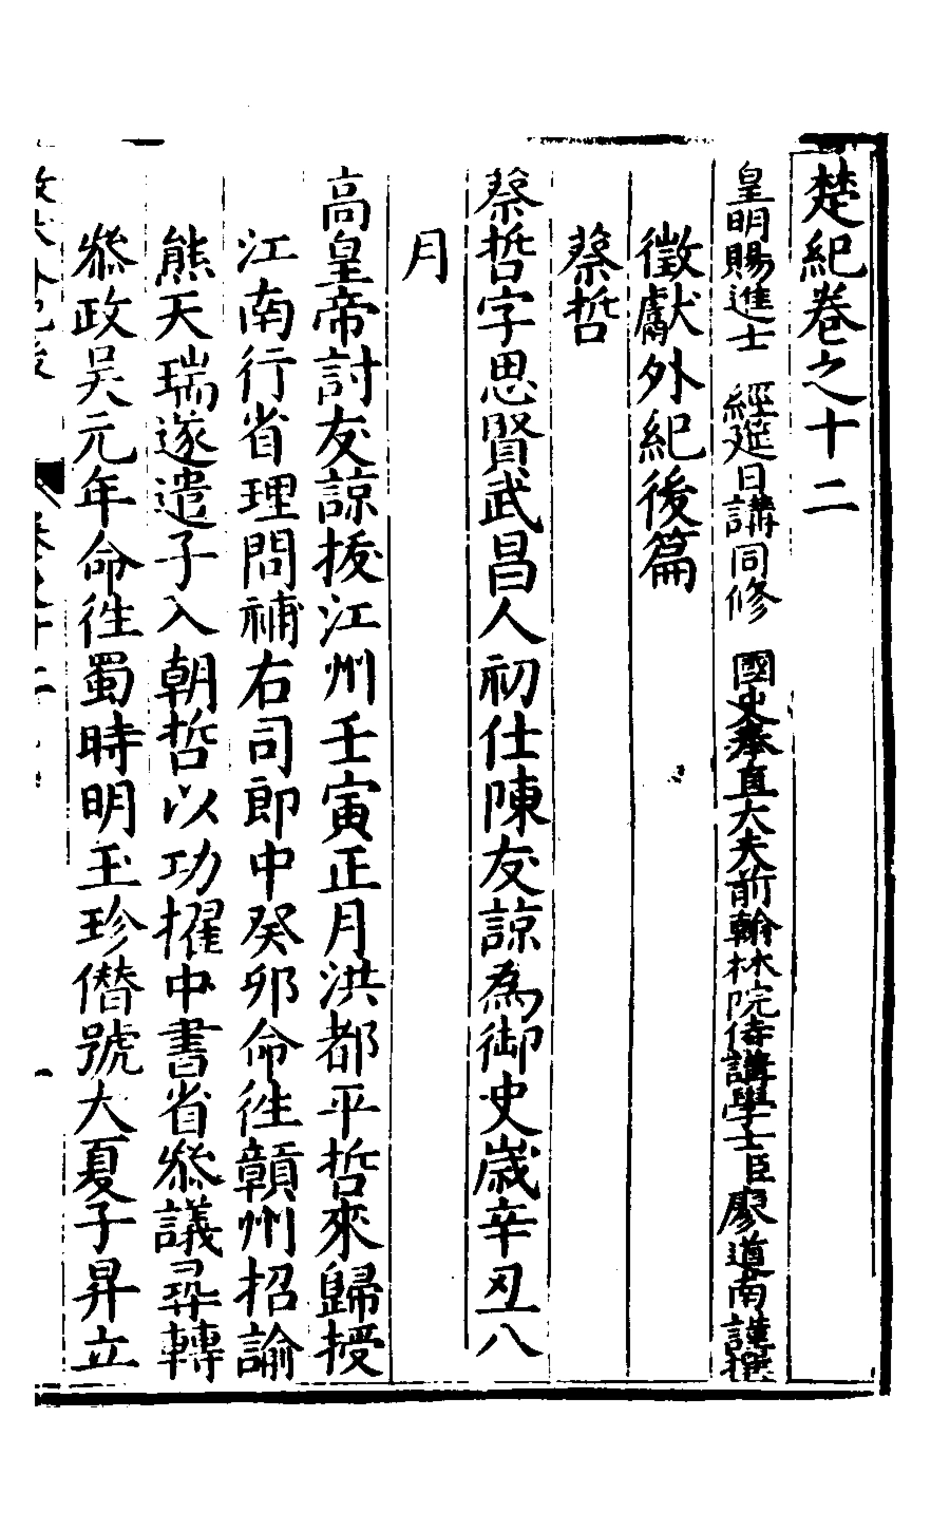 楚紀卷之十二
皇明賜進士　經筵日講同修　國史奉直大夫前翰林院侍講學士臣廖道南謹撰
徵獻外紀後篇
蔡哲
蔡哲字思賢武昌人初仕陳友諒為御史歲辛丑八
月
高皇帝討友諒拔江州壬寅正月洪都平哲來歸授
江南行省理問補右司郎中癸卯命徃贛州招諭
熊天瑞遂遣子入朝哲以功擢中書省叅議尋轉
叅政吳元年命徃蜀時明玉珍僭號大夏子昇立